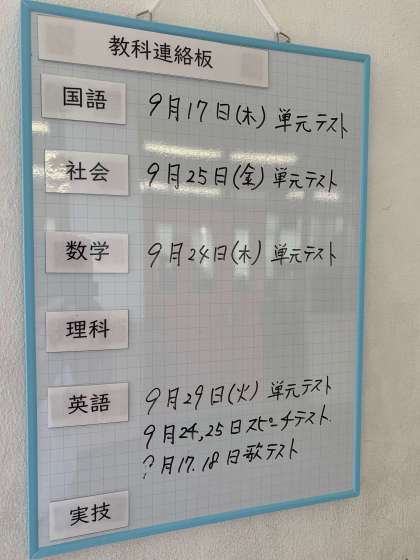 教科連絡板
国語
9月17日(木) 単元テスト
社会
9月25日(金) 単元テスト
数学
9月24日(木) 単元テスト
理科
英語
9月29日(火) 単元テスト
9月24,25日スピーチテスト
月17.18日歌テスト
実技